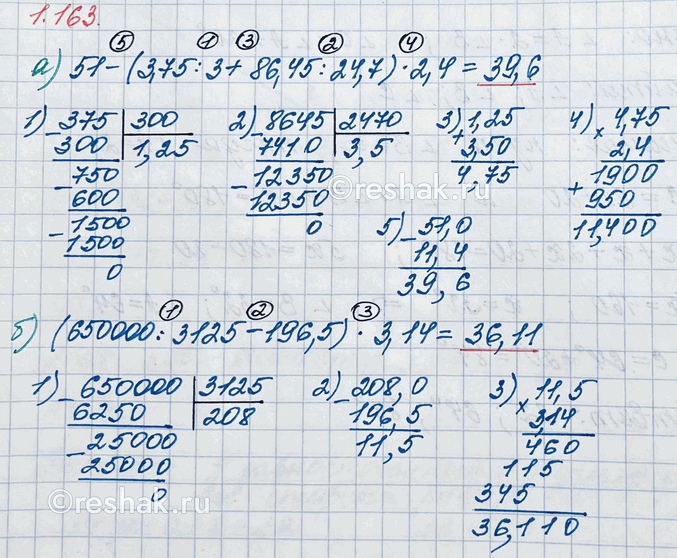 1.163.
⑤ ① ③ ② ④
а) 51-(3,75:3+86,45:24,7)·2,4=39,6
1) -375 | 300
300 | 1,25
-750
600
-1500
1500
0
2) -8645 | 2470
7410 | 3,5
-12350
12350
0
3) +1,25
3,50
4,75
4) ×4,75
2,4
+1900
950
11,400
5) -51,0
11,4
39,6
① ② ③
б) (650000:3125-196,5)·3,14=36,11
1) -650000 | 3125
6250 | 208
-25000
25000
0
2) -208,0
196,5
11,5
3) ×11,5
3,14
460
115
345
36,110
©reshak.ru
©reshak.ru
©reshak.ru
©reshak.ru